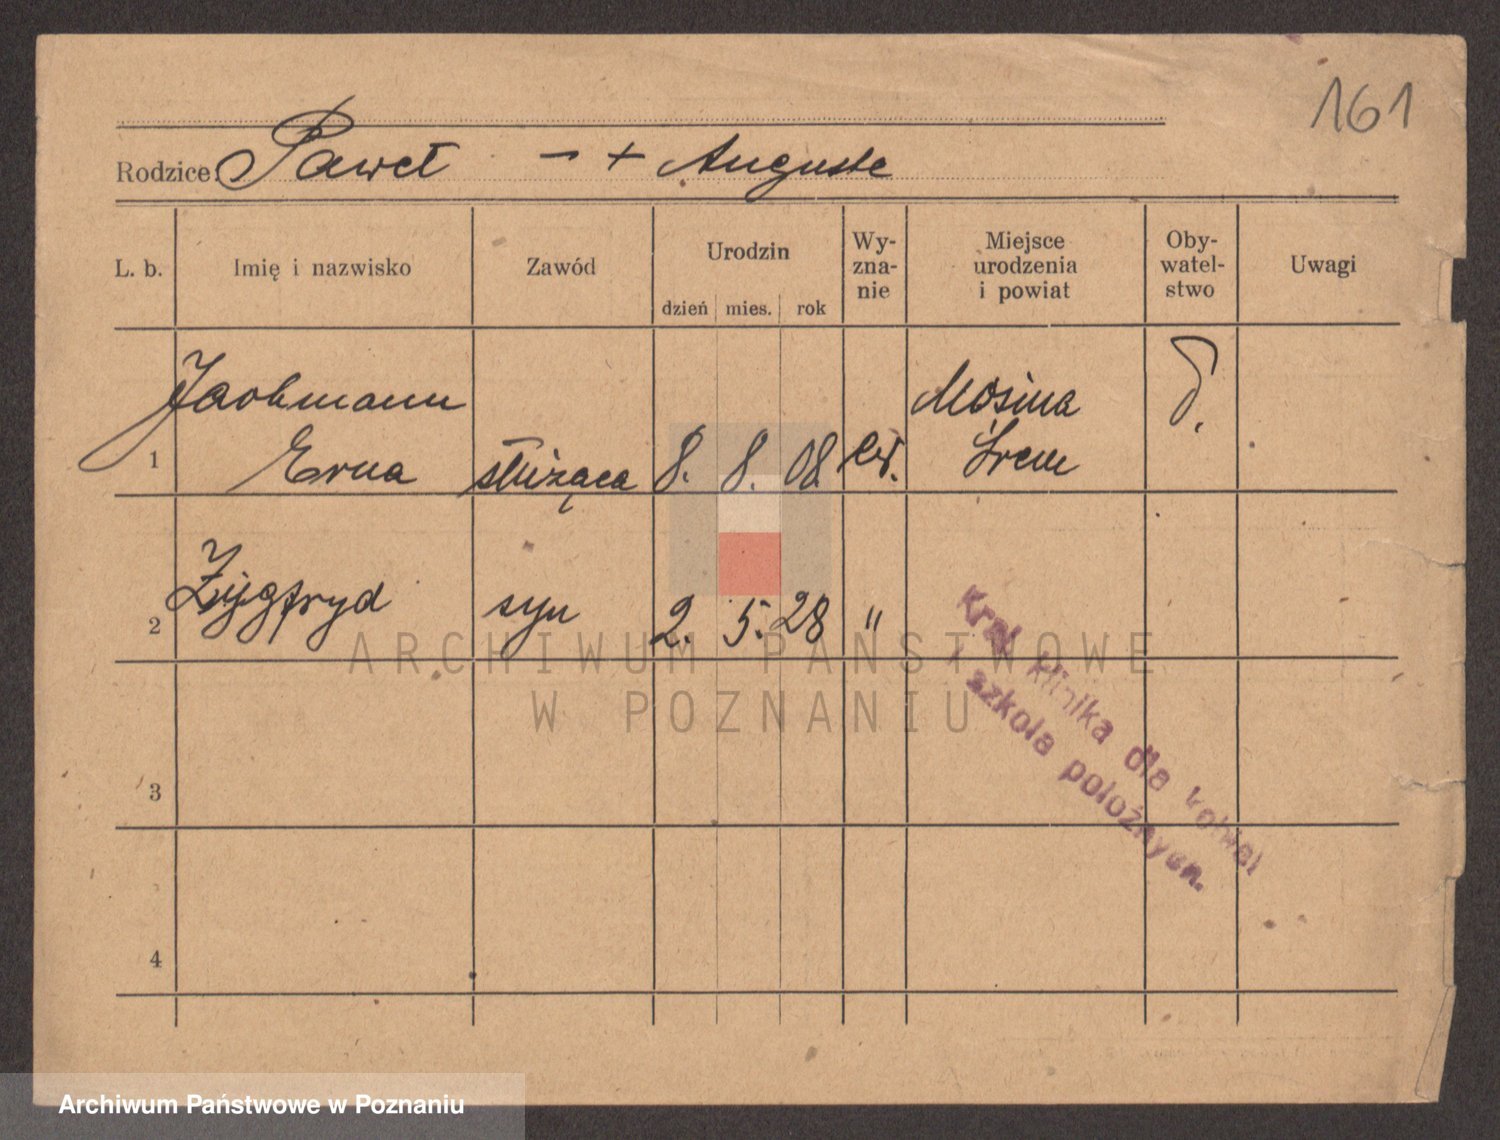 161
Rodzice: Paweł — + Auguste
L. b. Imię i nazwisko Zawód Urodzin Wy-zna-nie Miejsce urodzenia i powiat Oby-watel-stwo Uwagi
dzień mies. rok
Jachmann Mosina
1 Erna służąca 8. 8. 08 ew. Śrem
2 Zygfryd syn 2. 5. 28 "
Kraj. klinika dla kobiet
i szkoła położnych.
3
4
ARCHIWUM PAŃSTWOWE
W POZNANIU
Archiwum Państwowe w Poznaniu